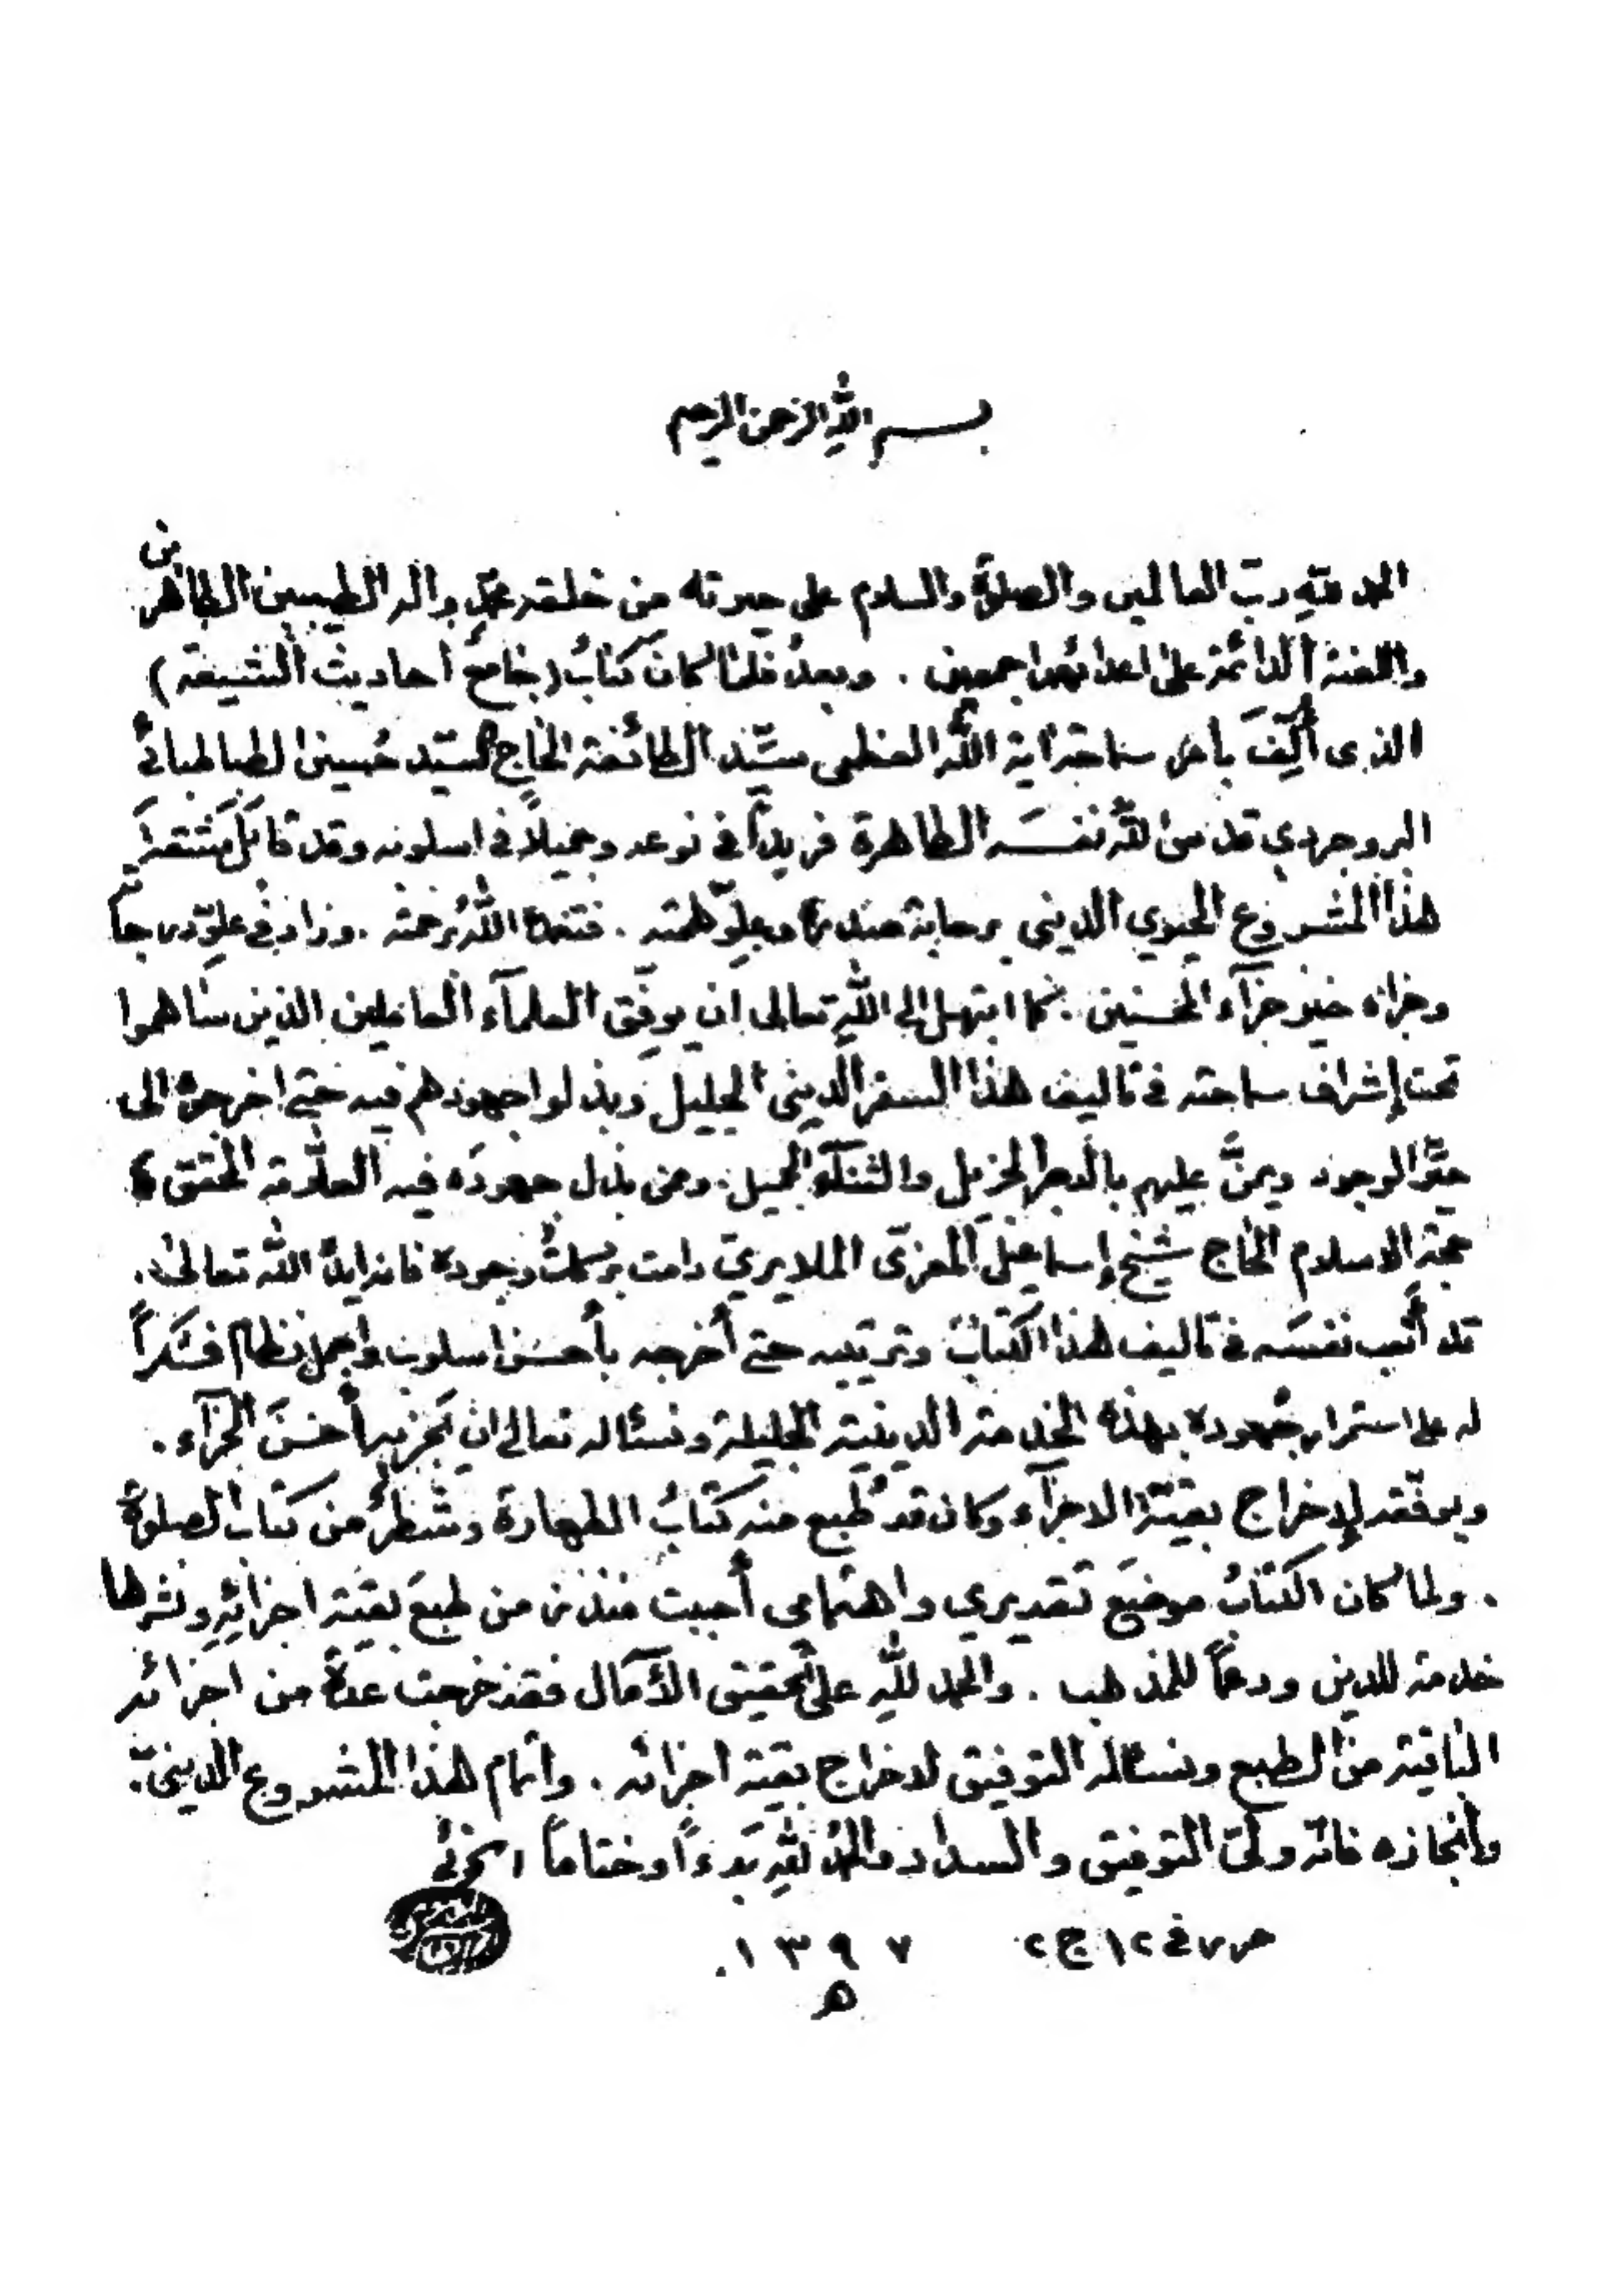 بسم الله الرحمن الرحيم
الحمد لله ربّ العالمين والصلوة والسلام على خيرته من خلقه محمّد وآله الطيبين الطاهرين
واللعنة الدائمة على اعدائهم اجمعين . وبعد فلمّا كان كتابُ (جامع أحاديث الشيعة)
الذى أُلِّفَ بأمر سماحة آية اللّٰه العظمى سيّد الطائفة الحاج السيّد حسين الطباطبائىّ
البروجردي قدس اللّٰه نفسَه الطاهرة فريداً في نوعه وجميلاً في اسلوبه وقد قابَلَ مشقّة
هذا المشروع الحيوي الديني برحابة صدره وعلوّ همّته . فتغمده اللّٰهُ برحمته . وزاد في علوّ درجاته
وجزاه خير جزآء المحسنين . كما ابتهل إلى اللّٰه تعالى ان يوفّق العلمآء العاملين الذين ساهموا
تحت إشراف سماحته في تاليف هذا السفر الديني الجليل وبذلوا جهودهم فيه حتى اخرجوه الى
حيّز الوجود ويمنَّ عليهم بالاجر الجزيل والشكر الجميل . وممن بذل جهودَه فيه العلّامة المحقق
حجة الاسلام الحاج شيخ إسماعيل المعزّى الملايري دامت بركات وجوده فانه ايده اللّٰه تعالى .
قد أتعب نفسَه في تاليف هذا الكتاب وترتيبه حتى أخرجه بأحسن اسلوب واجمل نظام فشكراً
له على استمرار جهوده بهذه الخدمة الدينية الجليلة ونسئاله تعالى ان يجزيه أحسنَ الجزآء .
ويوفّقه لإخراج بقيّة الاجزآء وكان قد طُبع منه كتابُ الطهارة وشطرٌ من كتاب الصلوة
. ولما كان الكتابُ موضعَ تقديري واهتمامى أحببت منذ زمن طبعَ بقيّة اجزائِهِ ونشرها
خدمة للدين ودعماً للمذهب . والحمد للّٰهِ على تحقيق الآمال فقد خرجت عدة من اجزائه
الباقية من الطبع ونسئاله التوفيق لاخراج بقية اجزائه . واتمام هذا المشروع الدينىّ .
وانجازه فانّه ولىّ التوفيق والسداد والحمدُ للّٰهِ بَدءاً وختاماً الخوئي
حرر في ١٢ ج ٢ ١٣٩٧
ه